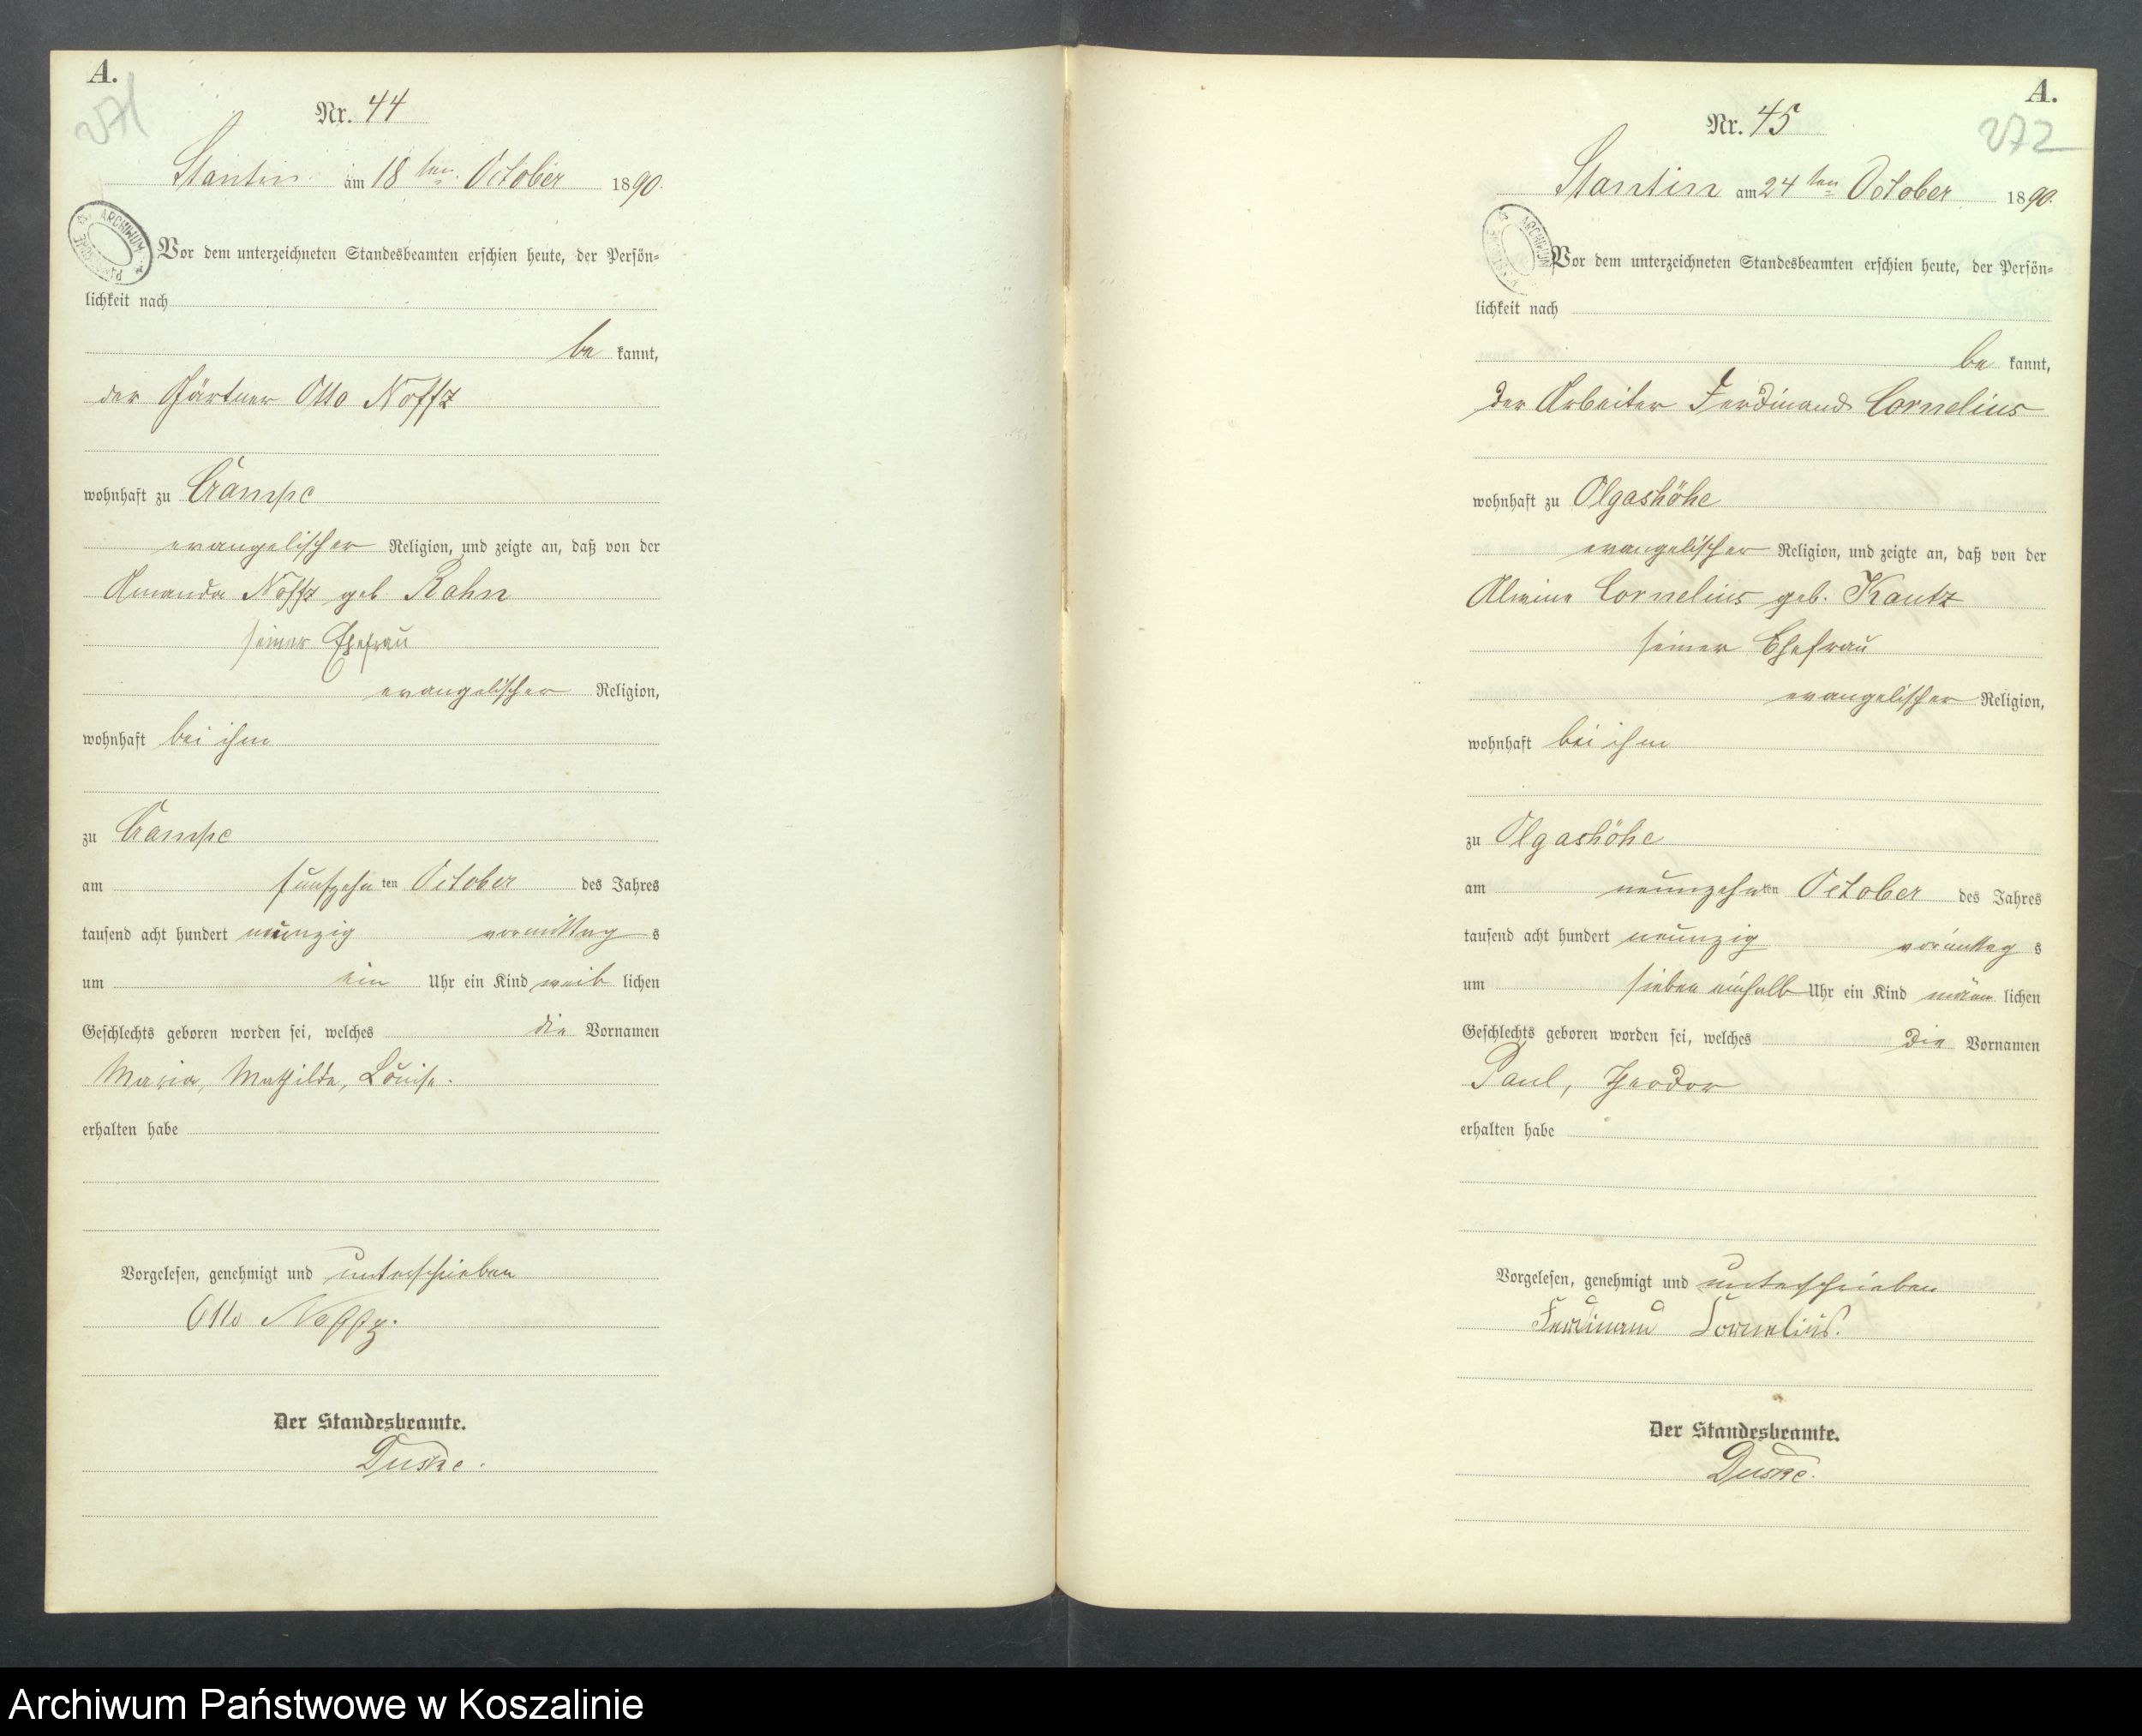 A.
271
Nr. 44
Stantin am 18ten October 1890.
ARCHIWUM
Vor dem unterzeichneten Standesbeamten erschien heute, der Persön=
lichkeit nach
be kannt,
der Gärtner Otto Noffz
wohnhaft zu Campe
evangelischer Religion, und zeigte an, daß von der
Amanda Noffz geb. Rahn
seiner Ehefrau
evangelischer Religion,
wohnhaft bei ihm
zu Campe
am fünfzehn ten October des Jahres
tausend acht hundert neunzig vormittag s
um ein Uhr ein Kind weib lichen
Geschlechts geboren worden sei, welches die Vornamen
Maria, Mathilde, Louise.
erhalten habe
Vorgelesen, genehmigt und unterschrieben
Otto Noffz.
Der Standesbeamte.
Duske.
A.
272
Nr. 45
Stantin am 24ten October 1890.
ARCHIWUM
Vor dem unterzeichneten Standesbeamten erschien heute, der Persön=
lichkeit nach
be kannt,
der Arbeiter Ferdinand Cornelius
wohnhaft zu Olgashöhe
evangelischer Religion, und zeigte an, daß von der
Alwine Cornelius geb. Kautz
seiner Ehefrau
evangelischer Religion,
wohnhaft bei ihm
zu Olgashöhe
am neunzehn ten October des Jahres
tausend acht hundert neunzig vormittag s
um sieben einhalb Uhr ein Kind männ lichen
Geschlechts geboren worden sei, welches die Vornamen
Paul, Theodor
erhalten habe
Vorgelesen, genehmigt und unterschrieben
Ferdinand Cornelius.
Der Standesbeamte.
Duske.
Archiwum Państwowe w Koszalinie